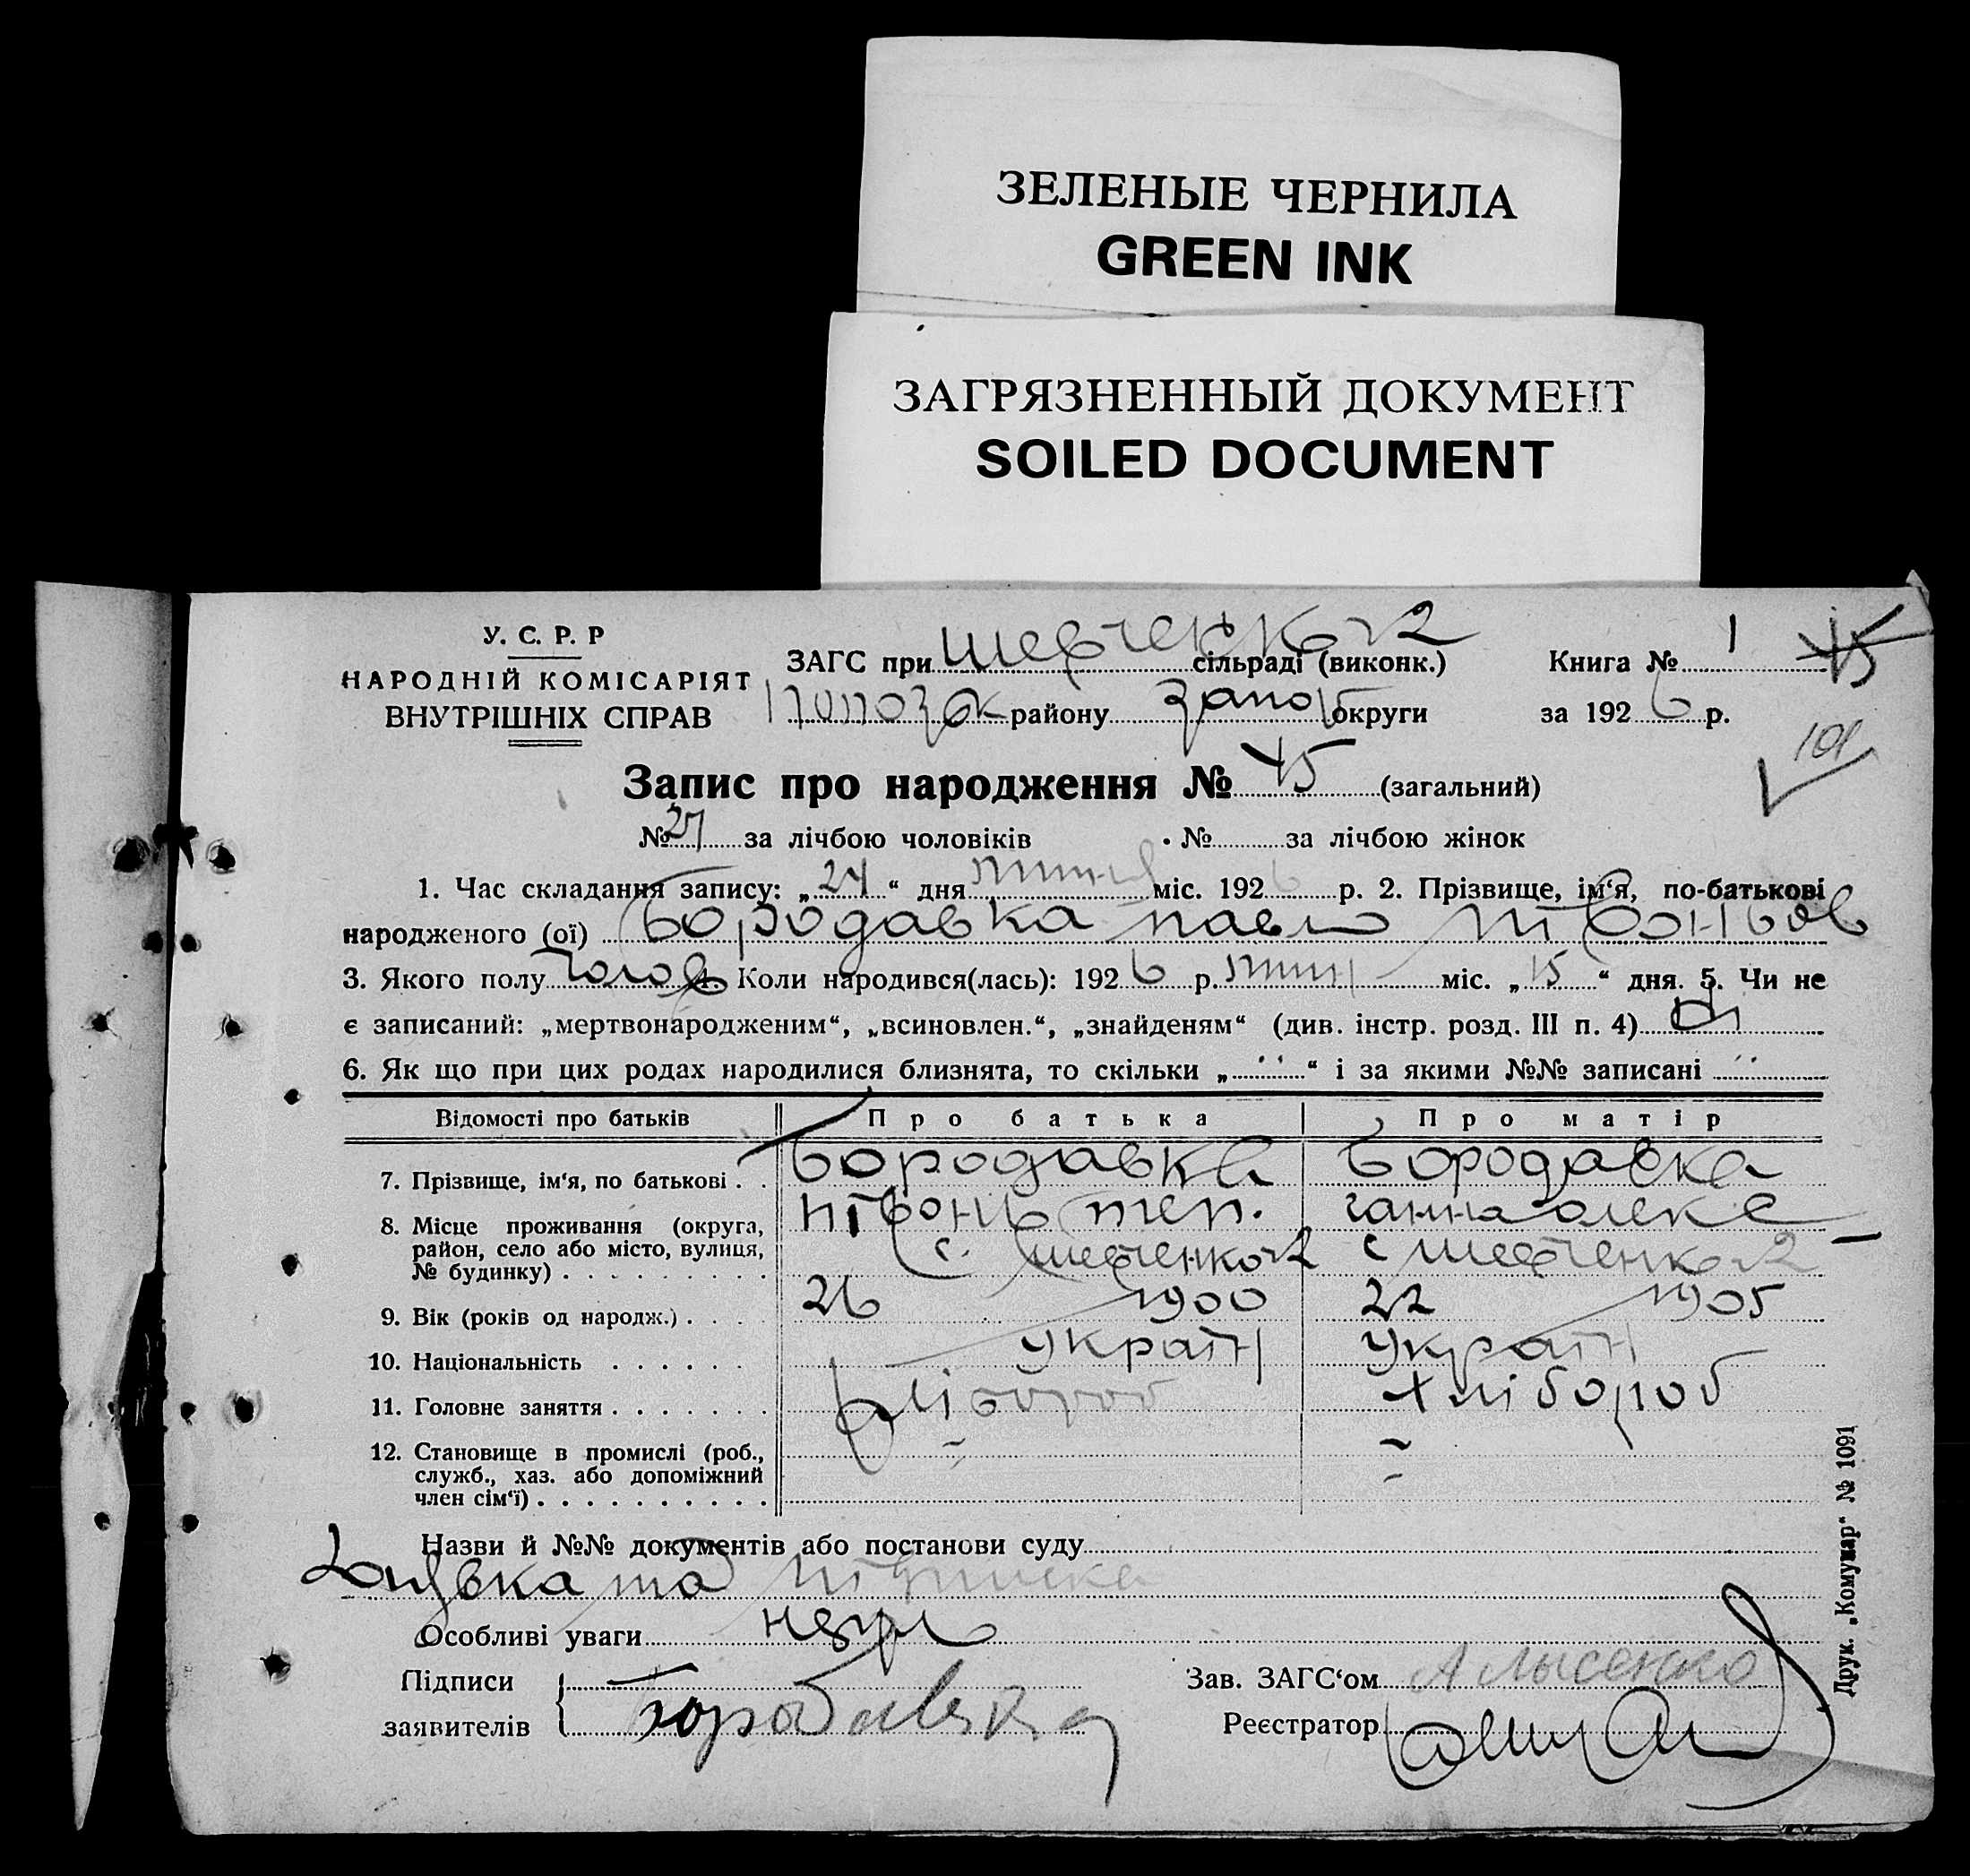 ЗЕЛЕНЫЕ ЧЕРНИЛА
GREEN INK
ЗАГРЯЗНЕННЫЙ ДОКУМЕНТ
SOILED DOCUMENT
У. С. Р. Р
НАРОДНІЙ КОМІСАРІЯТ
ВНУТРІШНІХ СПРАВ
ЗАГС при сільраді (виконк.)
району запор округи
Книга № 1 45
за 1926 р.
101
Запис про народження № 45 (загальний)
№ 27 за лічбою чоловіків № за лічбою жінок
1. Час складання запису: „24“ дня міс. 1926 р. 2. Прізвище, ім‘я, по-батькові
народженого (ої) Бородавка павло
3. Якого полу чолов 4. Коли народився(лась): 1926 р. міс. „15“ дня. 5. Чи не
є записаний: „мертвонародженим“, „всиновлен.“, „знайденям“ (див. інстр. розд. III п. 4)
6. Як що при цих родах народилися близнята, то скільки „ “ і за якими №№ записані
Відомості про батьків Про батька Про матір
7. Прізвище, ім‘я, по батькові . . Бородавка Бородавка
ганна олекс
8. Місце проживання (округа,
район, село або місто, вулиця,
№ будинку) . . . . . . . . . с. с
9. Вік (років од народж.) . . . . 26 1900 22 1905
10. Національність . . . . . . україн україн
11. Головне заняття . . . . . . . хлібороб хлібороб
12. Становище в промислі (роб.,
служб., хаз. або допоміжний
член сім‘ї) . . . . . . . . . . - -
Назви й №№ документів або постанови суду
та підписка
Особливі уваги
Підписи
заявителів Бородавка
Зав. ЗАГС‘ом А Лысенко
Реєстратор
Друк. „Комунар“ № 1091